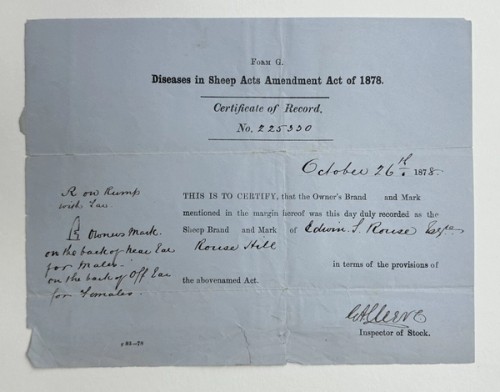 FORM G.
Diseases in Sheep Acts Amendment Act of 1878.
Certificate of Record.
No. 225330
October 26th. 1878
R on Rump
with Tar
THIS IS TO CERTIFY, that the Owner's Brand and Mark
mentioned in the margin hereof was this day duly recorded as the
R Owners Mark.
Sheep Brand and Mark of Edwin S. Rouse Esqre
on the back of near Ear
Rouse Hill
for Males.
in terms of the provisions of
on the back of Off Ear
the abovenamed Act.
for Females.
Inspector of Stock.